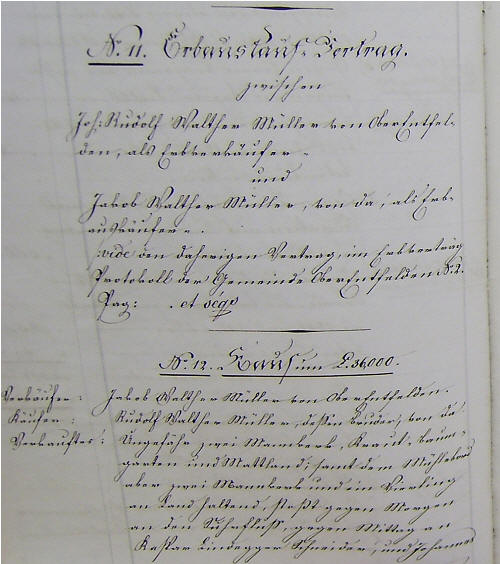 N. 11. Erbauskauf-Vertrag.
zwischen
Joh: Rudolf Walther Müller von OberEntfel-
den, als Erbverkäufer -
und
Jakob Walther Müller, von da, als Erb-
auskäufer -.
vide den daherigen Vertrag, im Erbverträg
Protokoll der Gemeinde OberEntfelden N. 2.
Pag: . et seqs
N. 12. Kauf um L. 36,000.
Verkäufer: Jakob Walther Müller von OberEntfelden.
Käufer: Rudolf Walther Müller, dessen Bruder, von da.
Verkauftes: Ungefähr zwei Mannwerk, Kraut-, Baum-
garten und Mattland, samt dem
aber zwei Mannwerk und ein Vierling
an Land haltend, stoßt gegen Morgen
an den Suhrfluß, gegen Mittag an
Kaspar Lindegger Schneider, und Johannes